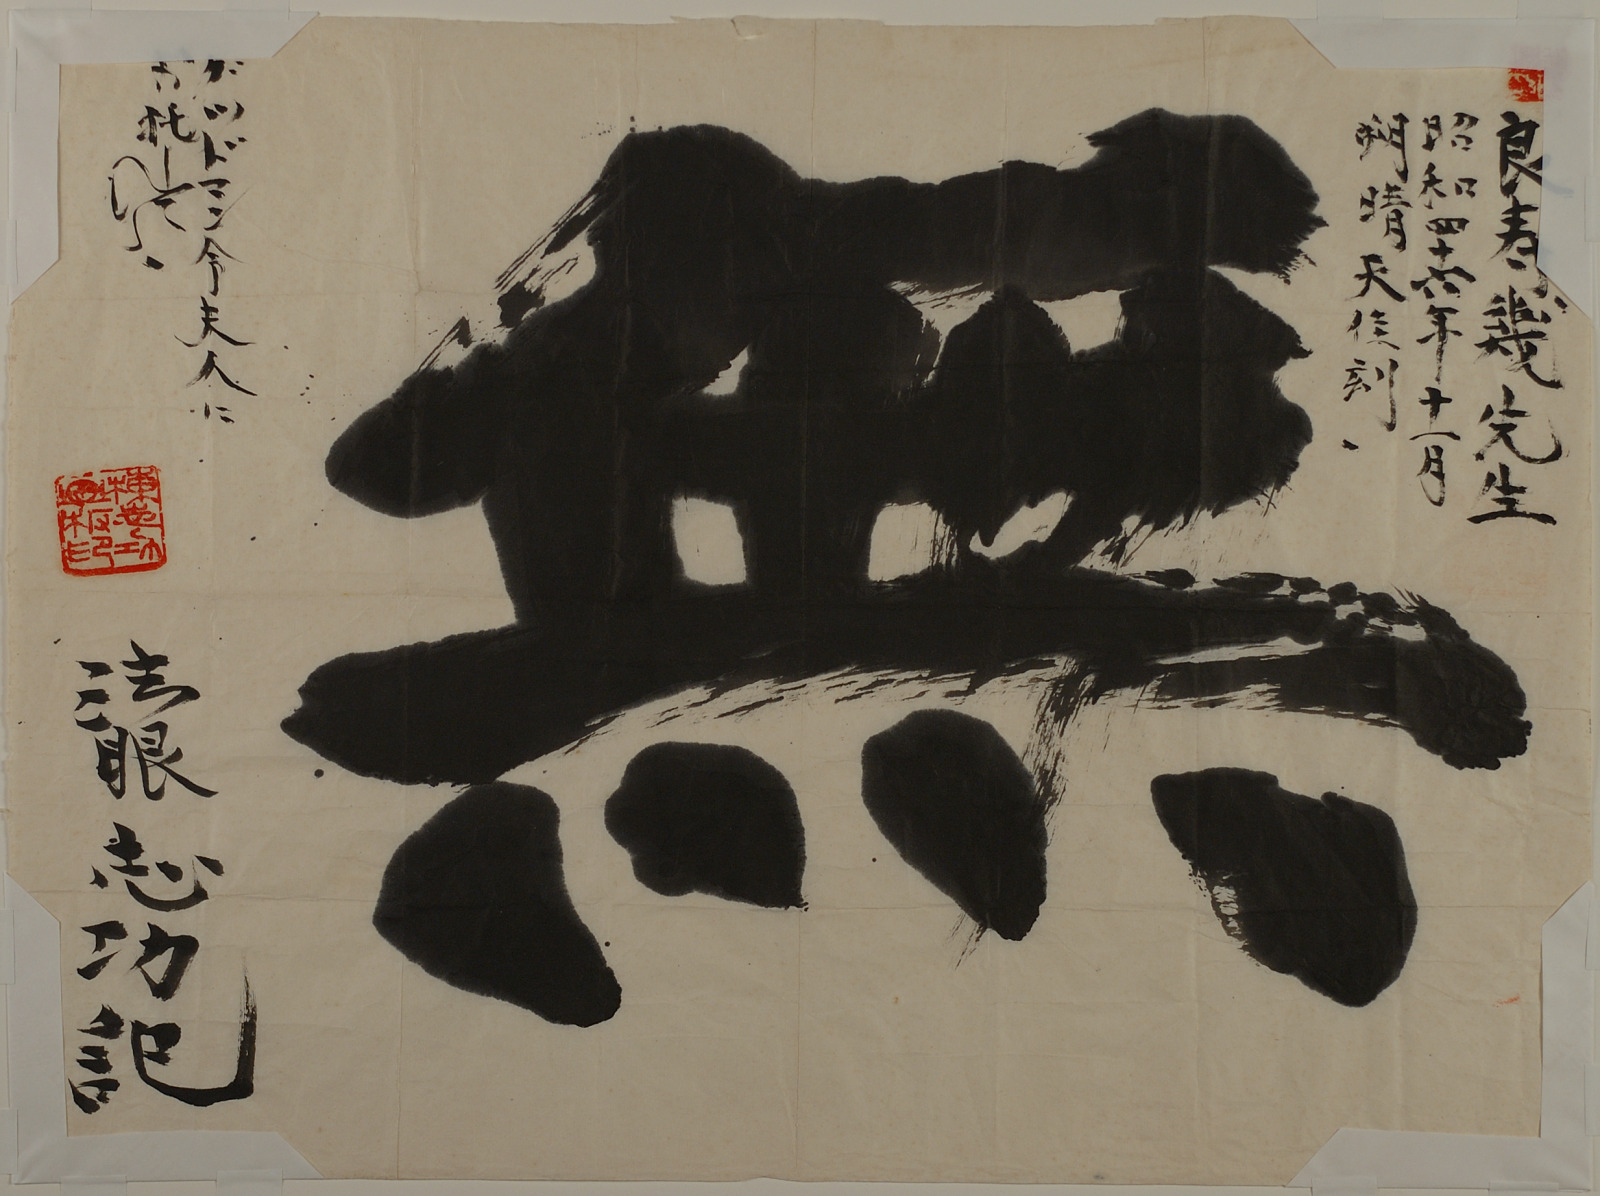 良寿幾先生
昭和四十六年十一月
朔晴天佳刻、
無
グッドマン令夫人に
托
法眼志功記